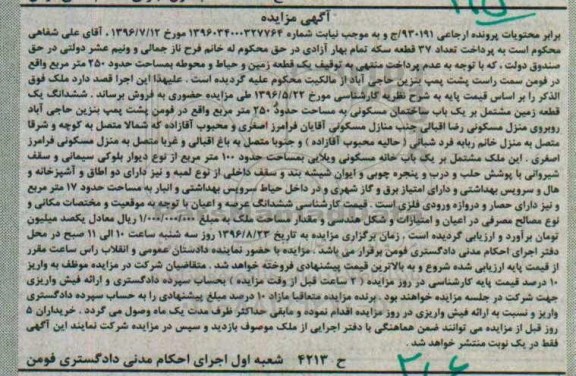 آگهی مزایده
برابر محتویات پرونده ارجاعی ۹۳۰۱۹۱/ج و به موجب نیابت شماره ۱۳۹۶۰۳۴۰۰۰۳۲۷۷۶۲ مورخ ۱۳۹۶/۷/۱۲ ، آقای علی شفاهی
محکوم است به پرداخت تعداد ۳۷ قطعه سکه تمام بهار آزادی در حق محکوم له خانم فرح ناز جمالی و ونیم عشر دولتی در حق
صندوق دولت ، که با توجه به عدم پرداخت منتهی به توقیف یک قطعه زمین و حیاط و محوطه بمساحت حدود ۲۵۰ متر مربع واقع
در فومن سمت راست پشت پمپ بنزین حاجی آباد از مالکیت محکوم علیه گردیده است . علیهذا این اجرا قصد دارد ملک فوق
الذکر را بر اساس قیمت پایه به شرح نظریه کارشناسی مورخ ۱۳۹۶/۵/۲۲ طی مزایده حضوری به فروش برساند . ششدانگ یک
قطعه زمین مشتمل بر یک باب ساختمان مسکونی به مساحت حدود ۲۵۰ متر مربع واقع در فومن پشت پمپ بنزین حاجی آباد
روبروی منزل مسکونی رضا اقبالی جنب منازل مسکونی آقایان فرامرز اصغری و محبوب آقازاده که شمالا متصل به کوچه و شرقا
متصل به منزل خانم ربابه فرد شبانی ( حالیه محبوب آقازاده ) و جنوبا متصل به باغ اقبالی و غربا متصل به منزل مسکونی فرامرز
اصغری . این ملک مشتمل بر یک باب خانه مسکونی ویلایی بمساحت حدود ۱۰۰ متر مربع از نوع دیوار بلوکی سیمانی و سقف
شیروانی با پوشش حلب و درب و پنجره چوبی و ایوان شیشه بند و سقف داخلی از نوع لمبه و نیز دارای دو اطاق و آشپزخانه و
هال و سرویس بهداشتی و دارای امتیاز برق و گاز شهری و در داخل حیاط سرویس بهداشتی و انبار به مساحت حدود ۱۷ متر مربع
و نیز دارای حصار و دروازه ورودی فلزی است . قیمت کارشناسی ششدانگ عرصه و اعیان با توجه به موقعیت و مختصات مکانی و
نوع مصالح مصرفی در اعیان و امتیازات و شکل هندسی و مقدار مساحت ملک به مبلغ ۱/۰۰۰/۰۰۰/۰۰۰ ریال معادل یکصد میلیون
تومان برآورد و ارزیابی گردیده است . زمان برگزاری مزایده به تاریخ ۱۳۹۶/۸/۲۳ روز سه شنبه ساعت ۱۰ الی ۱۱ صبح در محل
دفتر اجرای احکام مدنی دادگستری فومن برقرار می باشد . مزایده با حضور نماینده دادستان عمومی و انقلاب راس ساعت مقرر
از قیمت پایه ارزیابی شده شروع و به بالاترین قیمت پیشنهادی فروخته خواهد شد . متقاضیان شرکت در مزایده موظف به واریز
۱۰ درصد قیمت پایه کارشناسی در روز مزایده ( ۲ ساعت قبل از وقت مزایده ) بحساب سپرده دادگستری و ارائه فیش واریزی
جهت شرکت در جلسه مزایده خواهند بود . برنده مزایده متعاقبا مازاد ۱۰ درصد مبلغ پیشنهادی را به حساب سپرده دادگستری
واریز و نسبت به ارائه فیش واریزی در روز مزایده اقدام نموده و مابقی حداکثر ظرف مدت یک ماه وصول می گردد . خریداران ۵
روز قبل از مزایده می توانند ضمن هماهنگی با دفتر اجرایی از ملک موصوف بازدید و سپس در مزایده شرکت نمایند این آگهی
فقط در یک نوبت منتشر خواهد شد .
ح - ۴۲۱۳ شعبه اول اجرای احکام مدنی دادگستری فومن